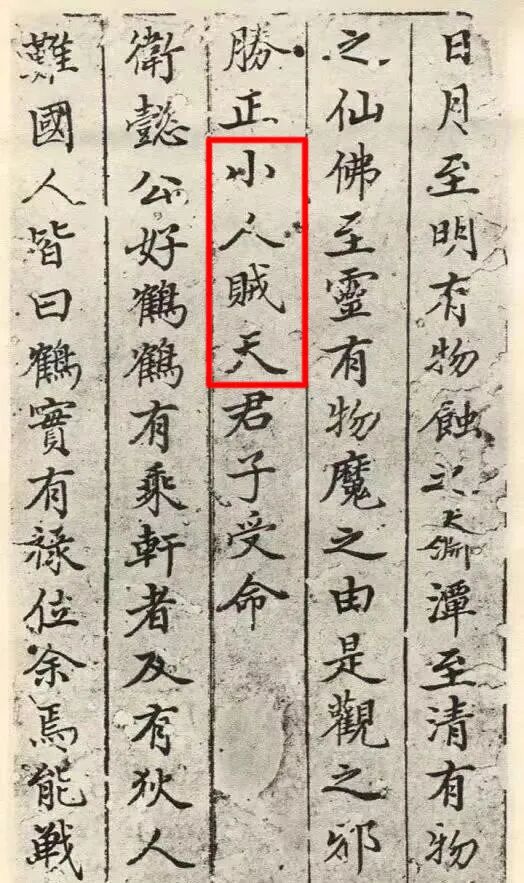 日月至明有物蝕之天淵潭至清有物
之仙佛至靈有物魔之由是觀之邪
勝正小人賊天君子受命
衛懿公好鶴鶴有乘軒者及有狄人
難國人皆曰鶴實有祿位余焉能戰